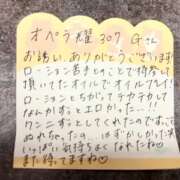 オペラ燿 307 Gさん
お誘い、ありがとうございます!
ローション苦手とのことで持参して
頂いたオイルでオイルプレイ!
ローションとちがって、テカテカして
なんかすっごくエロかった…!!
ワンコーすっとしてくれたので、すごく
ぬれちゃった…♡はずかしかった
いっぱい気持ちよくなれた♡
また待ってますね♡